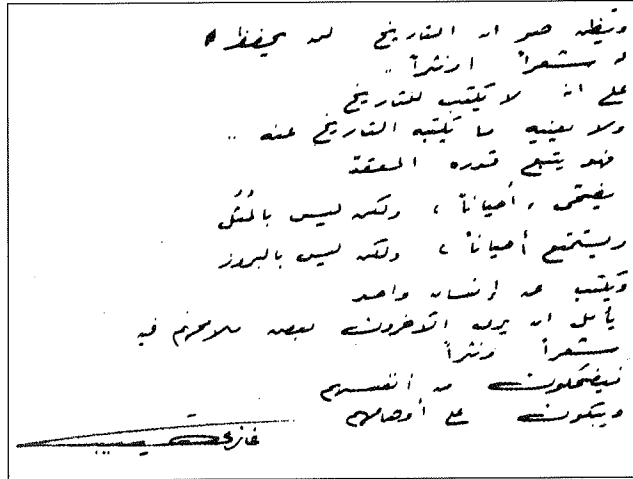 ويظن هو ان التاريخ لن يحفظ
له شعراً او نثراً ..
على انه لا يكتب للتاريخ
ولا يعنيه ما يكتبه التاريخ عنه ..
فهو يتبع قدره المعقد
يضحى ، أحياناً ، ولكن ليس بالمُثُل
ويستمتع أحياناً ، ولكن ليس بالبروز
ويكتب عن إنسان واحد
يأمل ان يرى الآخرون بعض ملامحهم فيه
شعراً ونثراً
فيضحكون من أنفسهم
ويبكون على أوهامهم
غازي